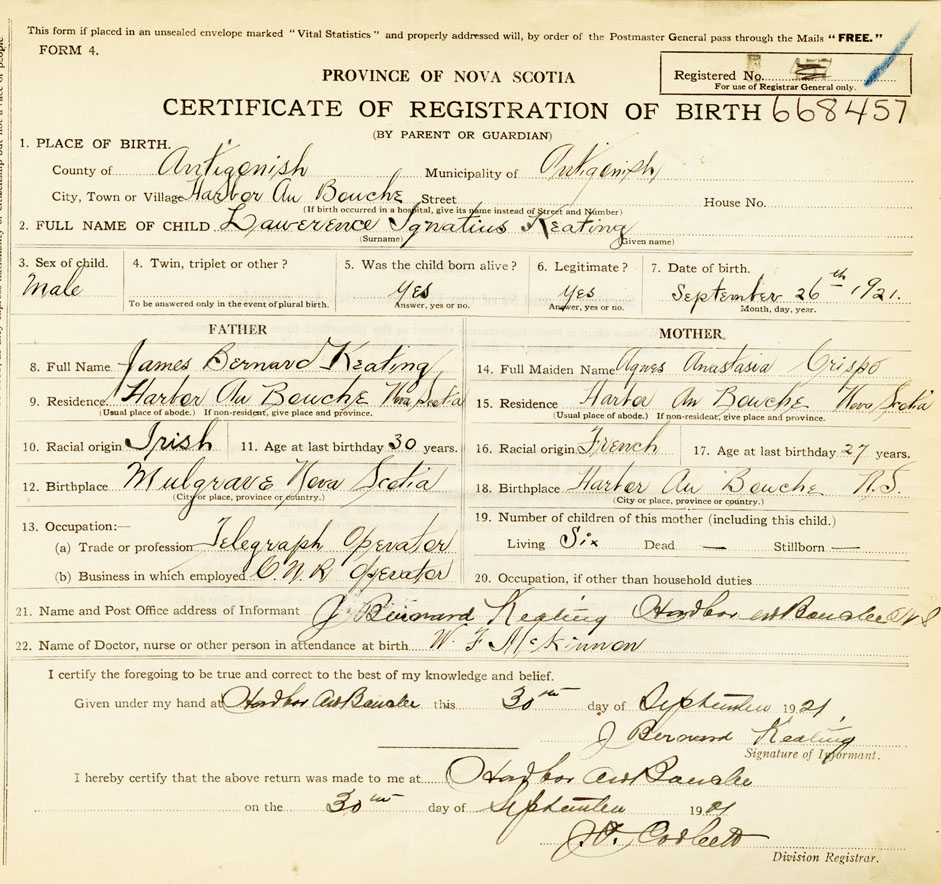 This form if placed in an unsealed envelope marked "Vital Statistics" and properly addressed will, by order of the Postmaster General pass through the Mails "FREE."
FORM 4.
Registered No.
For use of Registrar General only.
PROVINCE OF NOVA SCOTIA
CERTIFICATE OF REGISTRATION OF BIRTH 668457
(BY PARENT OR GUARDIAN)
1. PLACE OF BIRTH.
County of Antigonish Municipality of Antigonish
City, Town or Village Harbor Au Bouche Street House No.
(If birth occurred in a hospital, give its name instead of Street and Number)
2. FULL NAME OF CHILD Lawerence Ignatius Keating
(Surname) (Given name)
3. Sex of child. 4. Twin, triplet or other? 5. Was the child born alive? 6. Legitimate? 7. Date of birth.
Male yes yes September 26th 1921.
To be answered only in the event of plural birth. Answer, yes or no. Answer, yes or no. Month, day, year.
FATHER
8. Full Name James Bernard Keating
9. Residence Harbor Au Bouche Nova Scotia
(Usual place of abode.) If non-resident, give place and province.
10. Racial origin Irish 11. Age at last birthday 30 years.
12. Birthplace Mulgrave Nova Scotia
(City or place, province or country.)
13. Occupation:—
(a) Trade or profession Telegraph Operator
(b) Business in which employed C.N.R Operator
MOTHER
14. Full Maiden Name Agnes Anastasia Crispo
15. Residence Harbor Au Bouche Nova Scotia
(Usual place of abode.) If non-resident, give place and province.
16. Racial origin French 17. Age at last birthday 27 years.
18. Birthplace Harbor Au Bouche N.S.
(City or place, province or country.)
19. Number of children of this mother (including this child.)
Living Six Dead — Stillborn —
20. Occupation, if other than household duties
21. Name and Post Office address of Informant J Bernard Keating Harbor au Bouche N S
22. Name of Doctor, nurse or other person in attendance at birth W. F McKinnon
I certify the foregoing to be true and correct to the best of my knowledge and belief.
Given under my hand at Harbor au Bouche this 30th day of September 1921
J Bernard Keating
Signature of Informant.
I hereby certify that the above return was made to me at Harbor au Bouche
on the 30th day of September 1921
Corbett
Division Registrar.